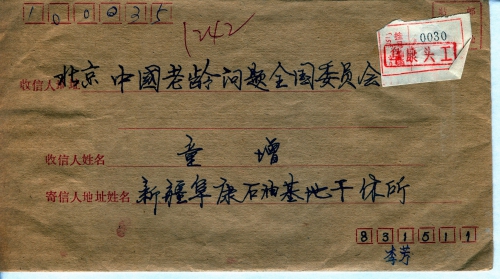 100035
1242
0030
收信人地址 北京 中國老龄问题全国委员会
收信人姓名 童 增
寄信人地址姓名 新疆阜康石油基地干休所
831511
李芳